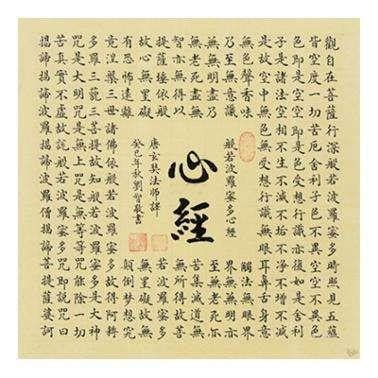 觀自在菩薩行深般若波羅蜜多時照見五蘊
皆空度一切苦厄舍利子色不異空空不異色
色即是空空即是色受想行識亦復如是舍利
子是諸法空相不生不滅不垢不淨不增不減
是故空中無色無受想行識無眼耳鼻舌身意
無色聲香味觸法無眼界
乃至無意識界無無明亦
無無明盡乃至無老死亦
無老死盡無苦集滅道無
智亦無得以無所得故菩
提薩埵依般若波羅蜜多
故心無罣礙無罣礙故無
有恐怖遠離顛倒夢想究
竟涅槃三世諸佛依般若波羅蜜多故得阿耨
多羅三藐三菩提故知般若波羅蜜多是大神
咒是大明咒是無上咒是無等等咒能除一切
苦真實不虛故說般若波羅蜜多咒即說咒曰
揭諦揭諦波羅揭諦波羅僧揭諦菩提薩婆訶
般若波羅蜜多心經
心經
唐玄奘法師譯
癸巳年秋劉智書